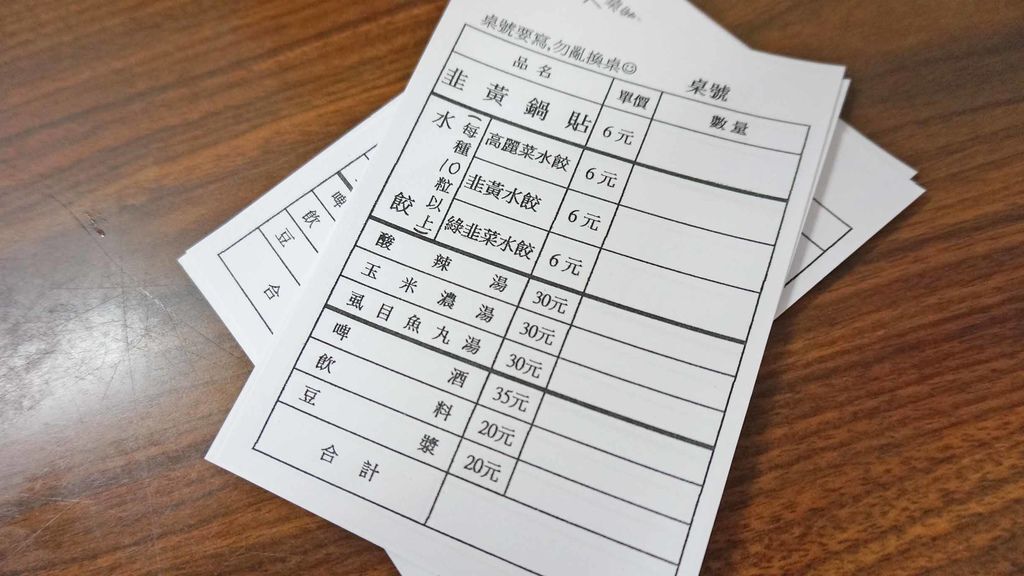 桌號要寫,勿亂換桌☺
桌號
品名 單價 數量
韭黃鍋貼 6元
水餃 (每種10粒以上)
高麗菜水餃 6元
韭黃水餃 6元
綠韭菜水餃 6元
酸辣湯 30元
玉米濃湯 30元
虱目魚丸湯 30元
啤酒 35元
飲料 20元
豆漿 20元
合計
啤
飲
豆
合